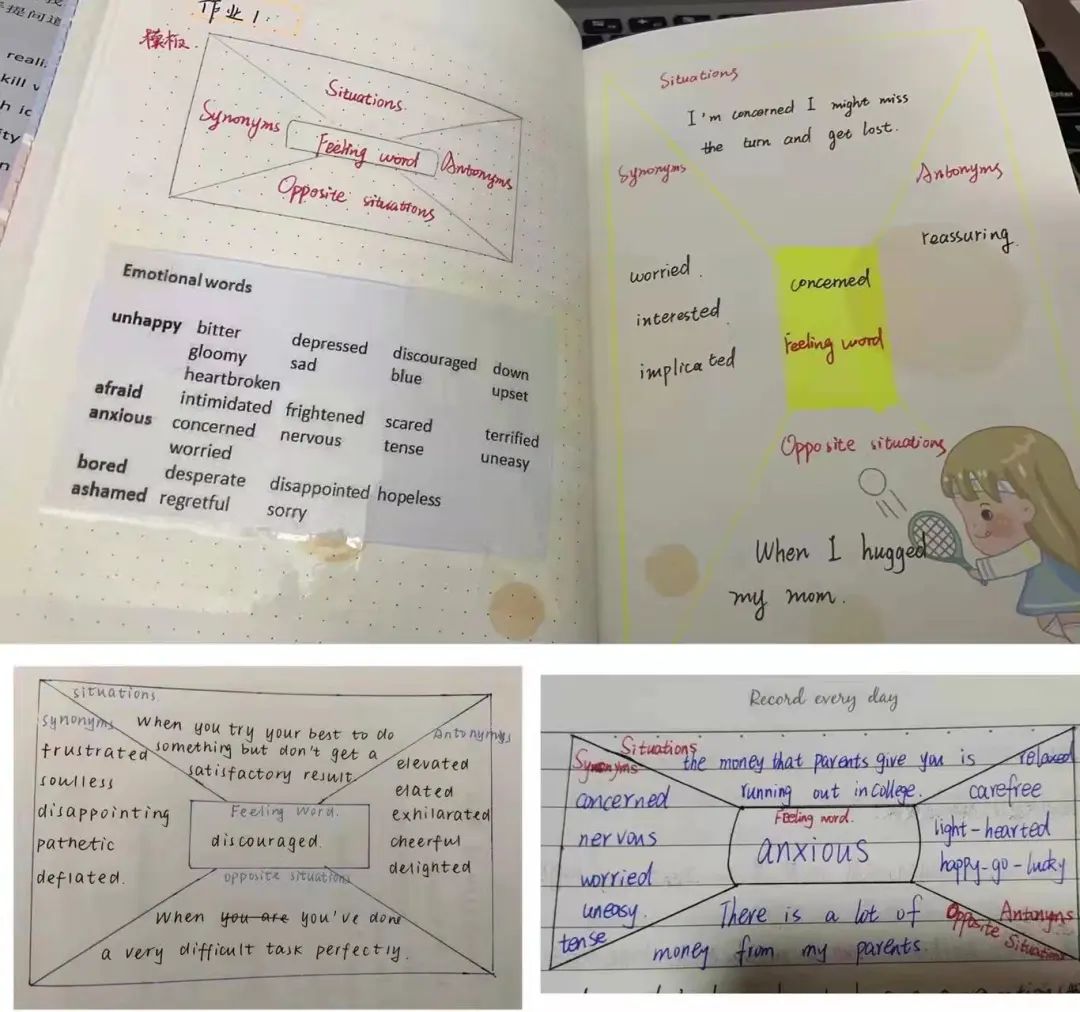 提问道
reali
kill
h ic
ity
n
作业1:
模板.
Situations.
Synonyms
Feeling word
Antonyms
Opposite situations
Emotional words
unhappy bitter depressed discouraged down
gloomy sad blue upset
heartbroken
afraid intimidated frightened scared terrified
anxious concerned nervous tense uneasy
worried
bored desperate disappointed hopeless
ashamed regretful sorry
Situations
I'm concerned I might miss
the turn and get lost.
Synonyms
Antonyms
reassuring.
worried.
interested.
implicated
concerned
Feeling word
Opposite situations
When I hugged
my mom.
situations.
synonyms
When you try your best to do
something but don't get a
satisfactory result.
Antonyms
frustrated
soulless
disappointing
pathetic
deflated.
Feeling Word.
discouraged.
elevated
elated
exhilarated
cheerful
delighted
opposite situations
When you are you've done
a very difficult task perfectly.
Record every day
Situations
Synonyms
the money that parents give you is
running out in college.
relaxed
carefree
light-hearted
happy-go-lucky
Antonyms
concerned
nervous
worried
uneasy.
tense
Feeling word.
anxious
There is a lot of
money from my parents.
Opposite Situations